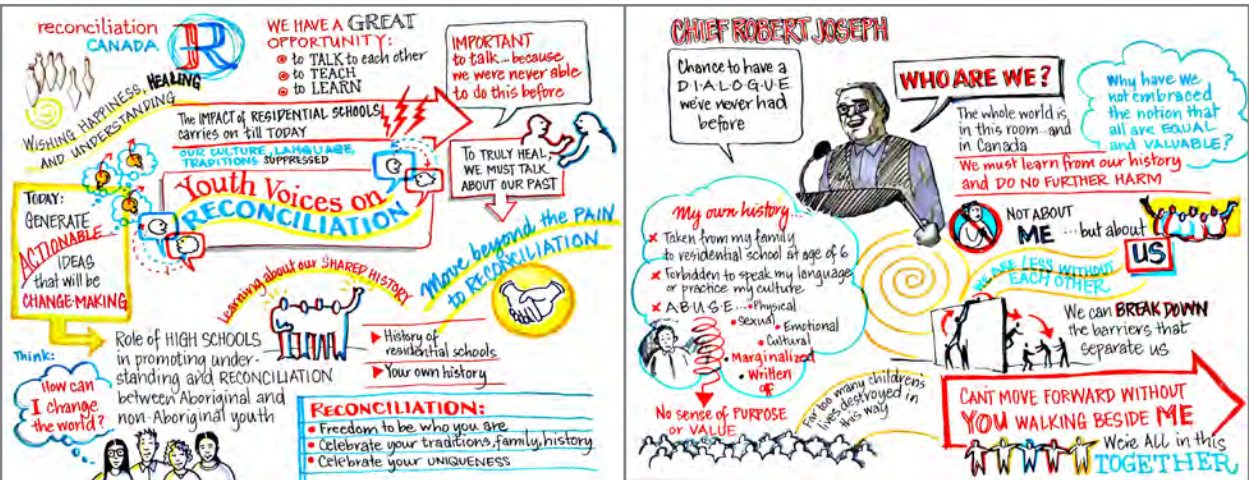 reconciliation
CANADA
R
WE HAVE A GREAT
OPPORTUNITY:
to TALK to each other
to TEACH
to LEARN
IMPORTANT
to talk...because
we were never able
to do this before
WISHING HAPPINESS, HEALING
AND UNDERSTANDING
The IMPACT of RESIDENTIAL SCHOOLS
carries on till TODAY
OUR CULTURE, LANGUAGE,
TRADITIONS SUPPRESSED
TO TRULY HEAL,
WE MUST TALK
ABOUT OUR PAST
Youth Voices on
RECONCILIATION
TODAY:
GENERATE
ACTIONABLE
IDEAS
that will be
CHANGE-MAKING
Move beyond the PAIN
to RECONCILIATION
Learning about our SHARED HISTORY
History of
residential schools
Your own history
Think:
How can
I change
the world?
Role of HIGH SCHOOLS
in promoting under-
standing and RECONCILIATION
between Aboriginal and
non-Aboriginal youth
RECONCILIATION:
• Freedom to be who you are
• Celebrate your traditions, family, history
• Celebrate your UNIQUENESS
CHIEF ROBERT JOSEPH
Chance to have a
DIALOGUE
we've never had
before
WHO ARE WE?
The whole world is
in this room...and
in Canada
Why have we
not embraced
the notion that
all are EQUAL
and VALUABLE?
We must learn from our history
and DO NO FURTHER HARM
My own history...
x Taken from my family
to residential school at age of 6
x Forbidden to speak my language
or practice my culture
x ABUSE... • Physical
• Sexual
• Emotional
• Cultural
• Marginalized
• Written
off
No sense of PURPOSE
or VALUE
NOT ABOUT
ME ...but about
US
WE ARE LESS WITHOUT
EACH OTHER
We can BREAK DOWN
the barriers that
separate us
Far too many children's
lives destroyed in
this way
CAN'T MOVE FORWARD WITHOUT
YOU WALKING BESIDE ME
We're ALL in this
TOGETHER